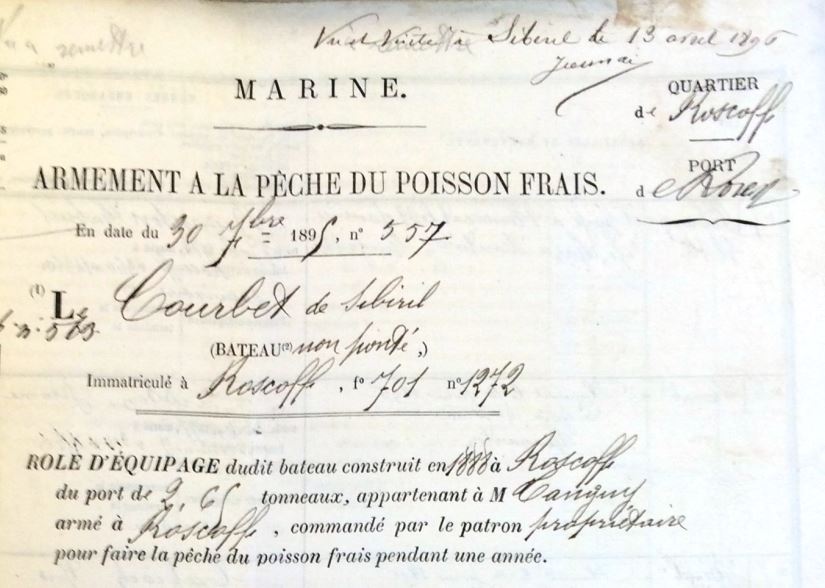 Vu et visité à Sibiril le 13 avril 1896
MARINE.
QUARTIER
de Roscoff
PORT
de
ARMEMENT A LA PÊCHE DU POISSON FRAIS.
En date du 30 7bre 1895, n° 357
(1) Le Courbet de Sibiril
(BATEAU(2) non ponté,)
Immatriculé à Roscoff, f° 701 n° 1272
ROLE D'ÉQUIPAGE dudit bateau construit en 1888 à Roscoff
du port de 2,65 tonneaux, appartenant à M Tanguy
armé à Roscoff, commandé par le patron propriétaire
pour faire la pêche du poisson frais pendant une année.